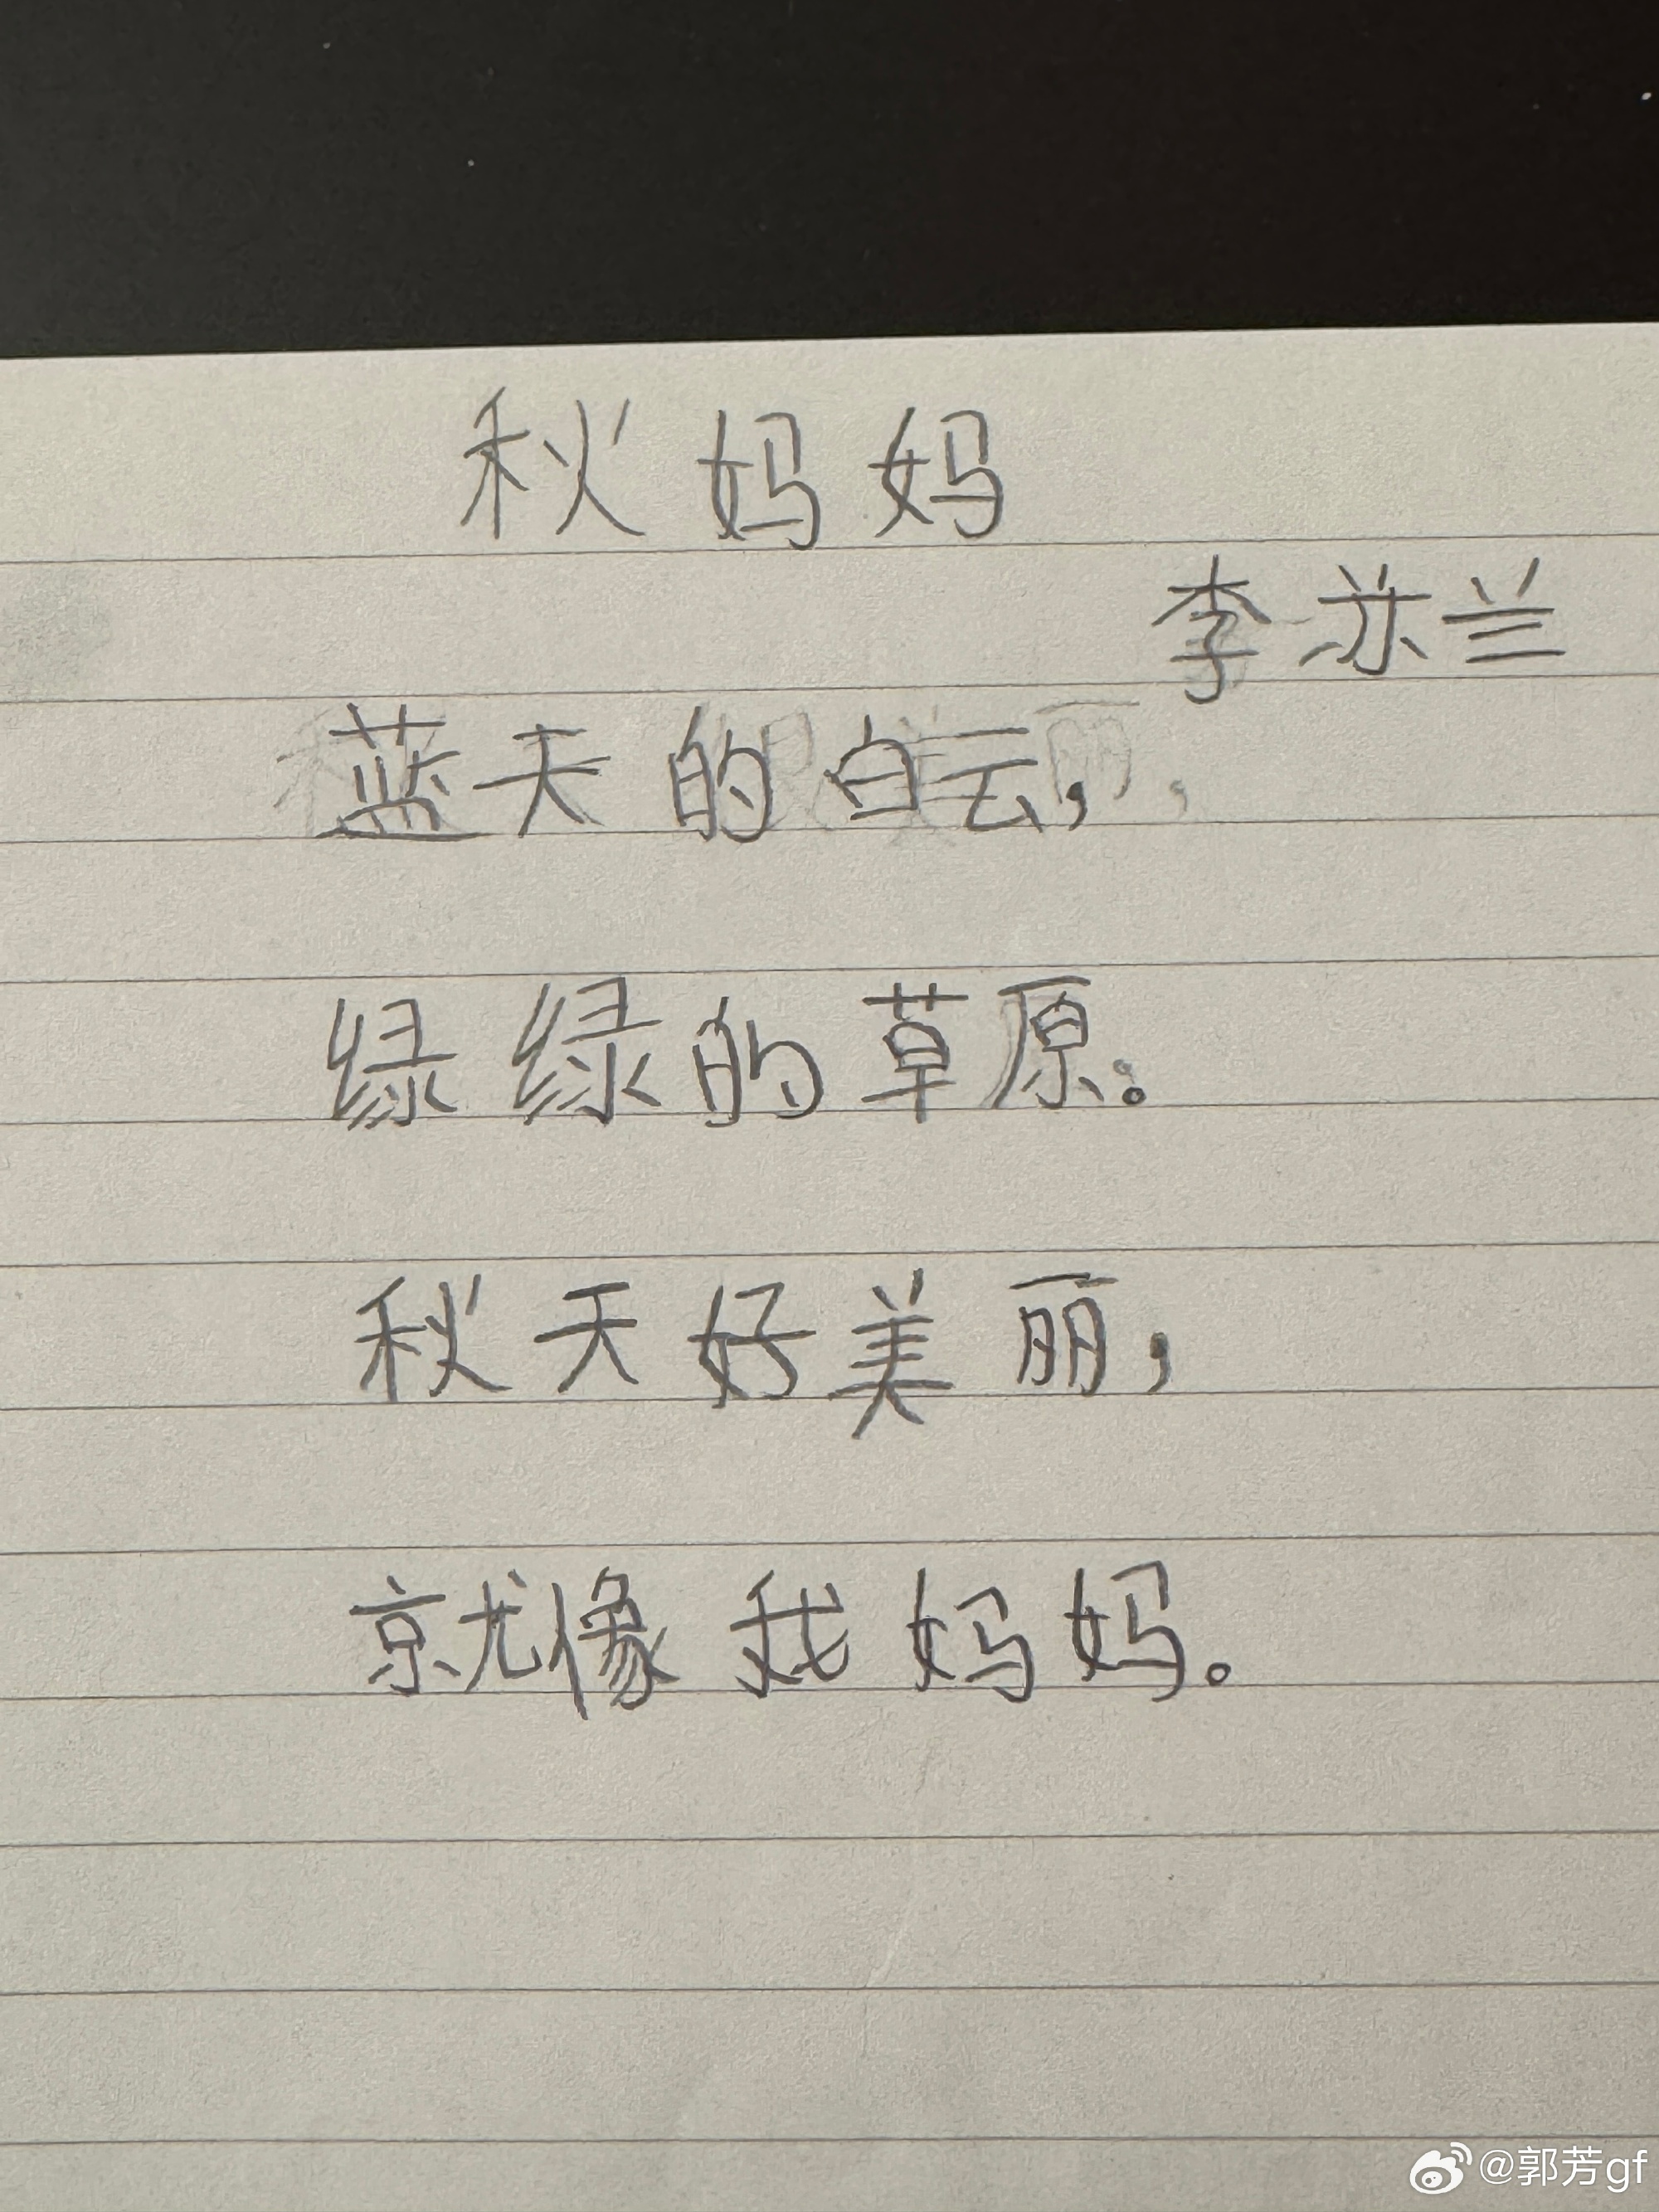 秋妈妈
李苏兰
蓝天的白云，
绿绿的草原。
秋天好美丽，
就像我妈妈。
@郭芳gf